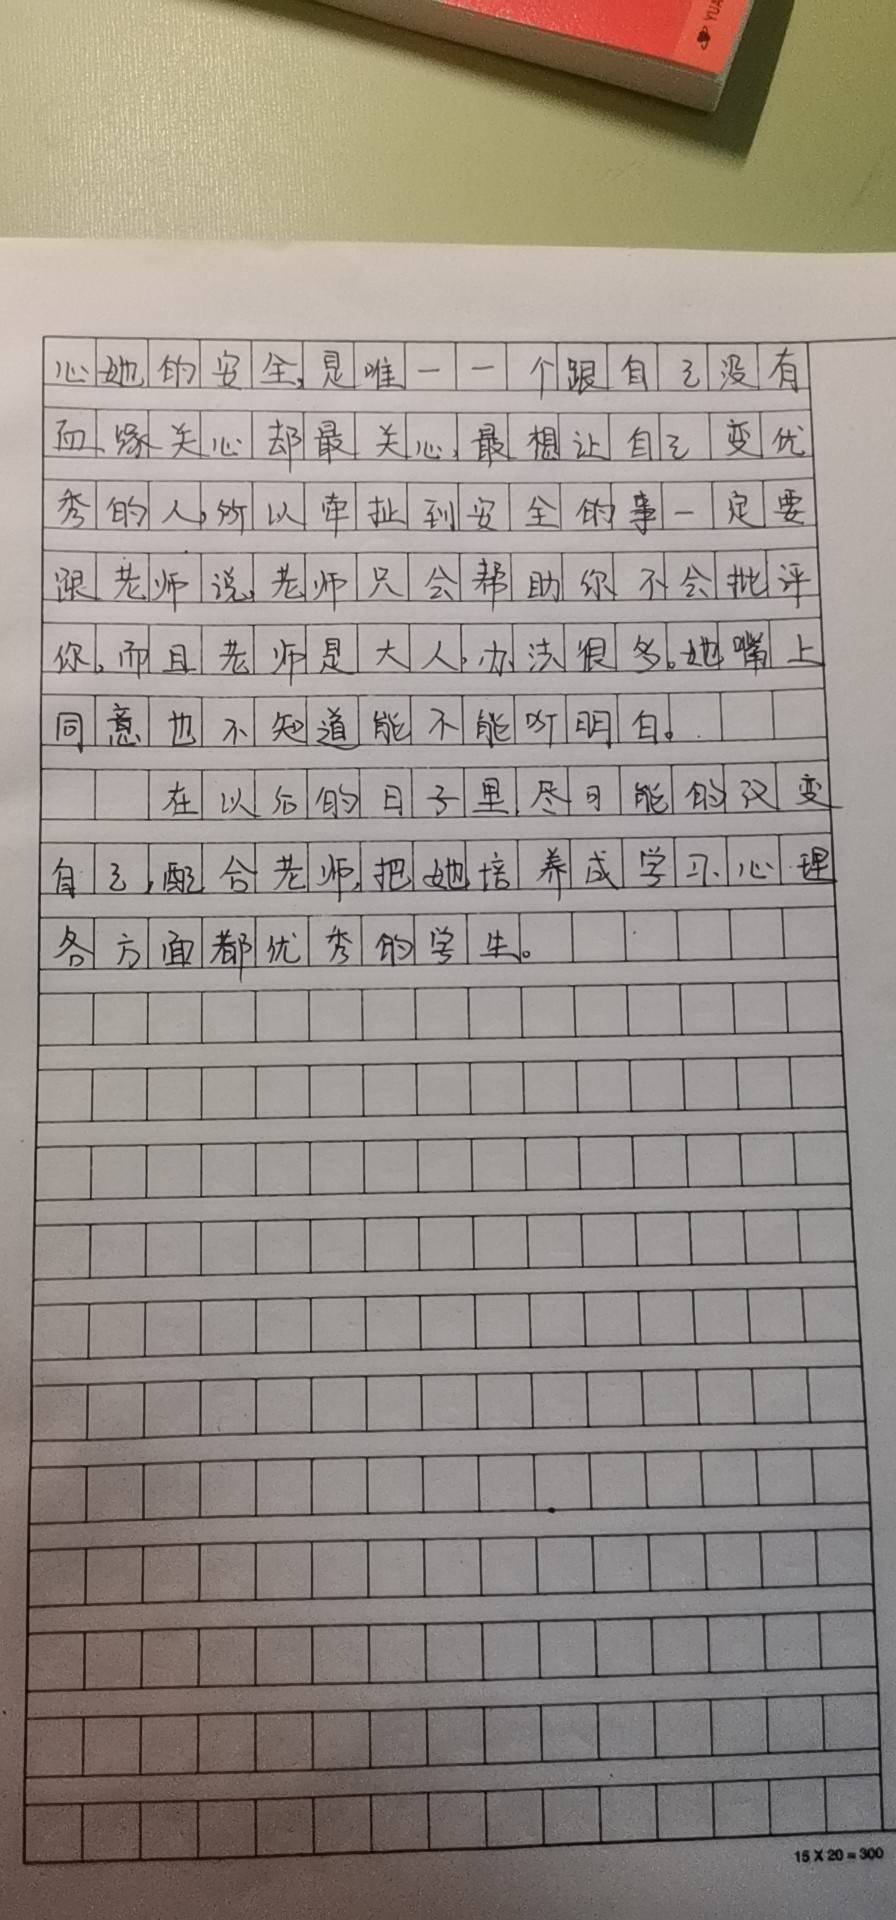 YUA
心她的安全,是唯一一个跟自己没有
血缘关心却最关心,最想让自己变优
秀的人,所以牵扯到安全的事一定要
跟老师说,老师只会帮助你不会批评
你,而且老师是大人,办法很多。她嘴上
同意也不知道能不能听明白。
在以后的日子里,尽可能的改变
自己,配合老师,把她培养成学习、心理
各方面都优秀的学生。
15×20=300